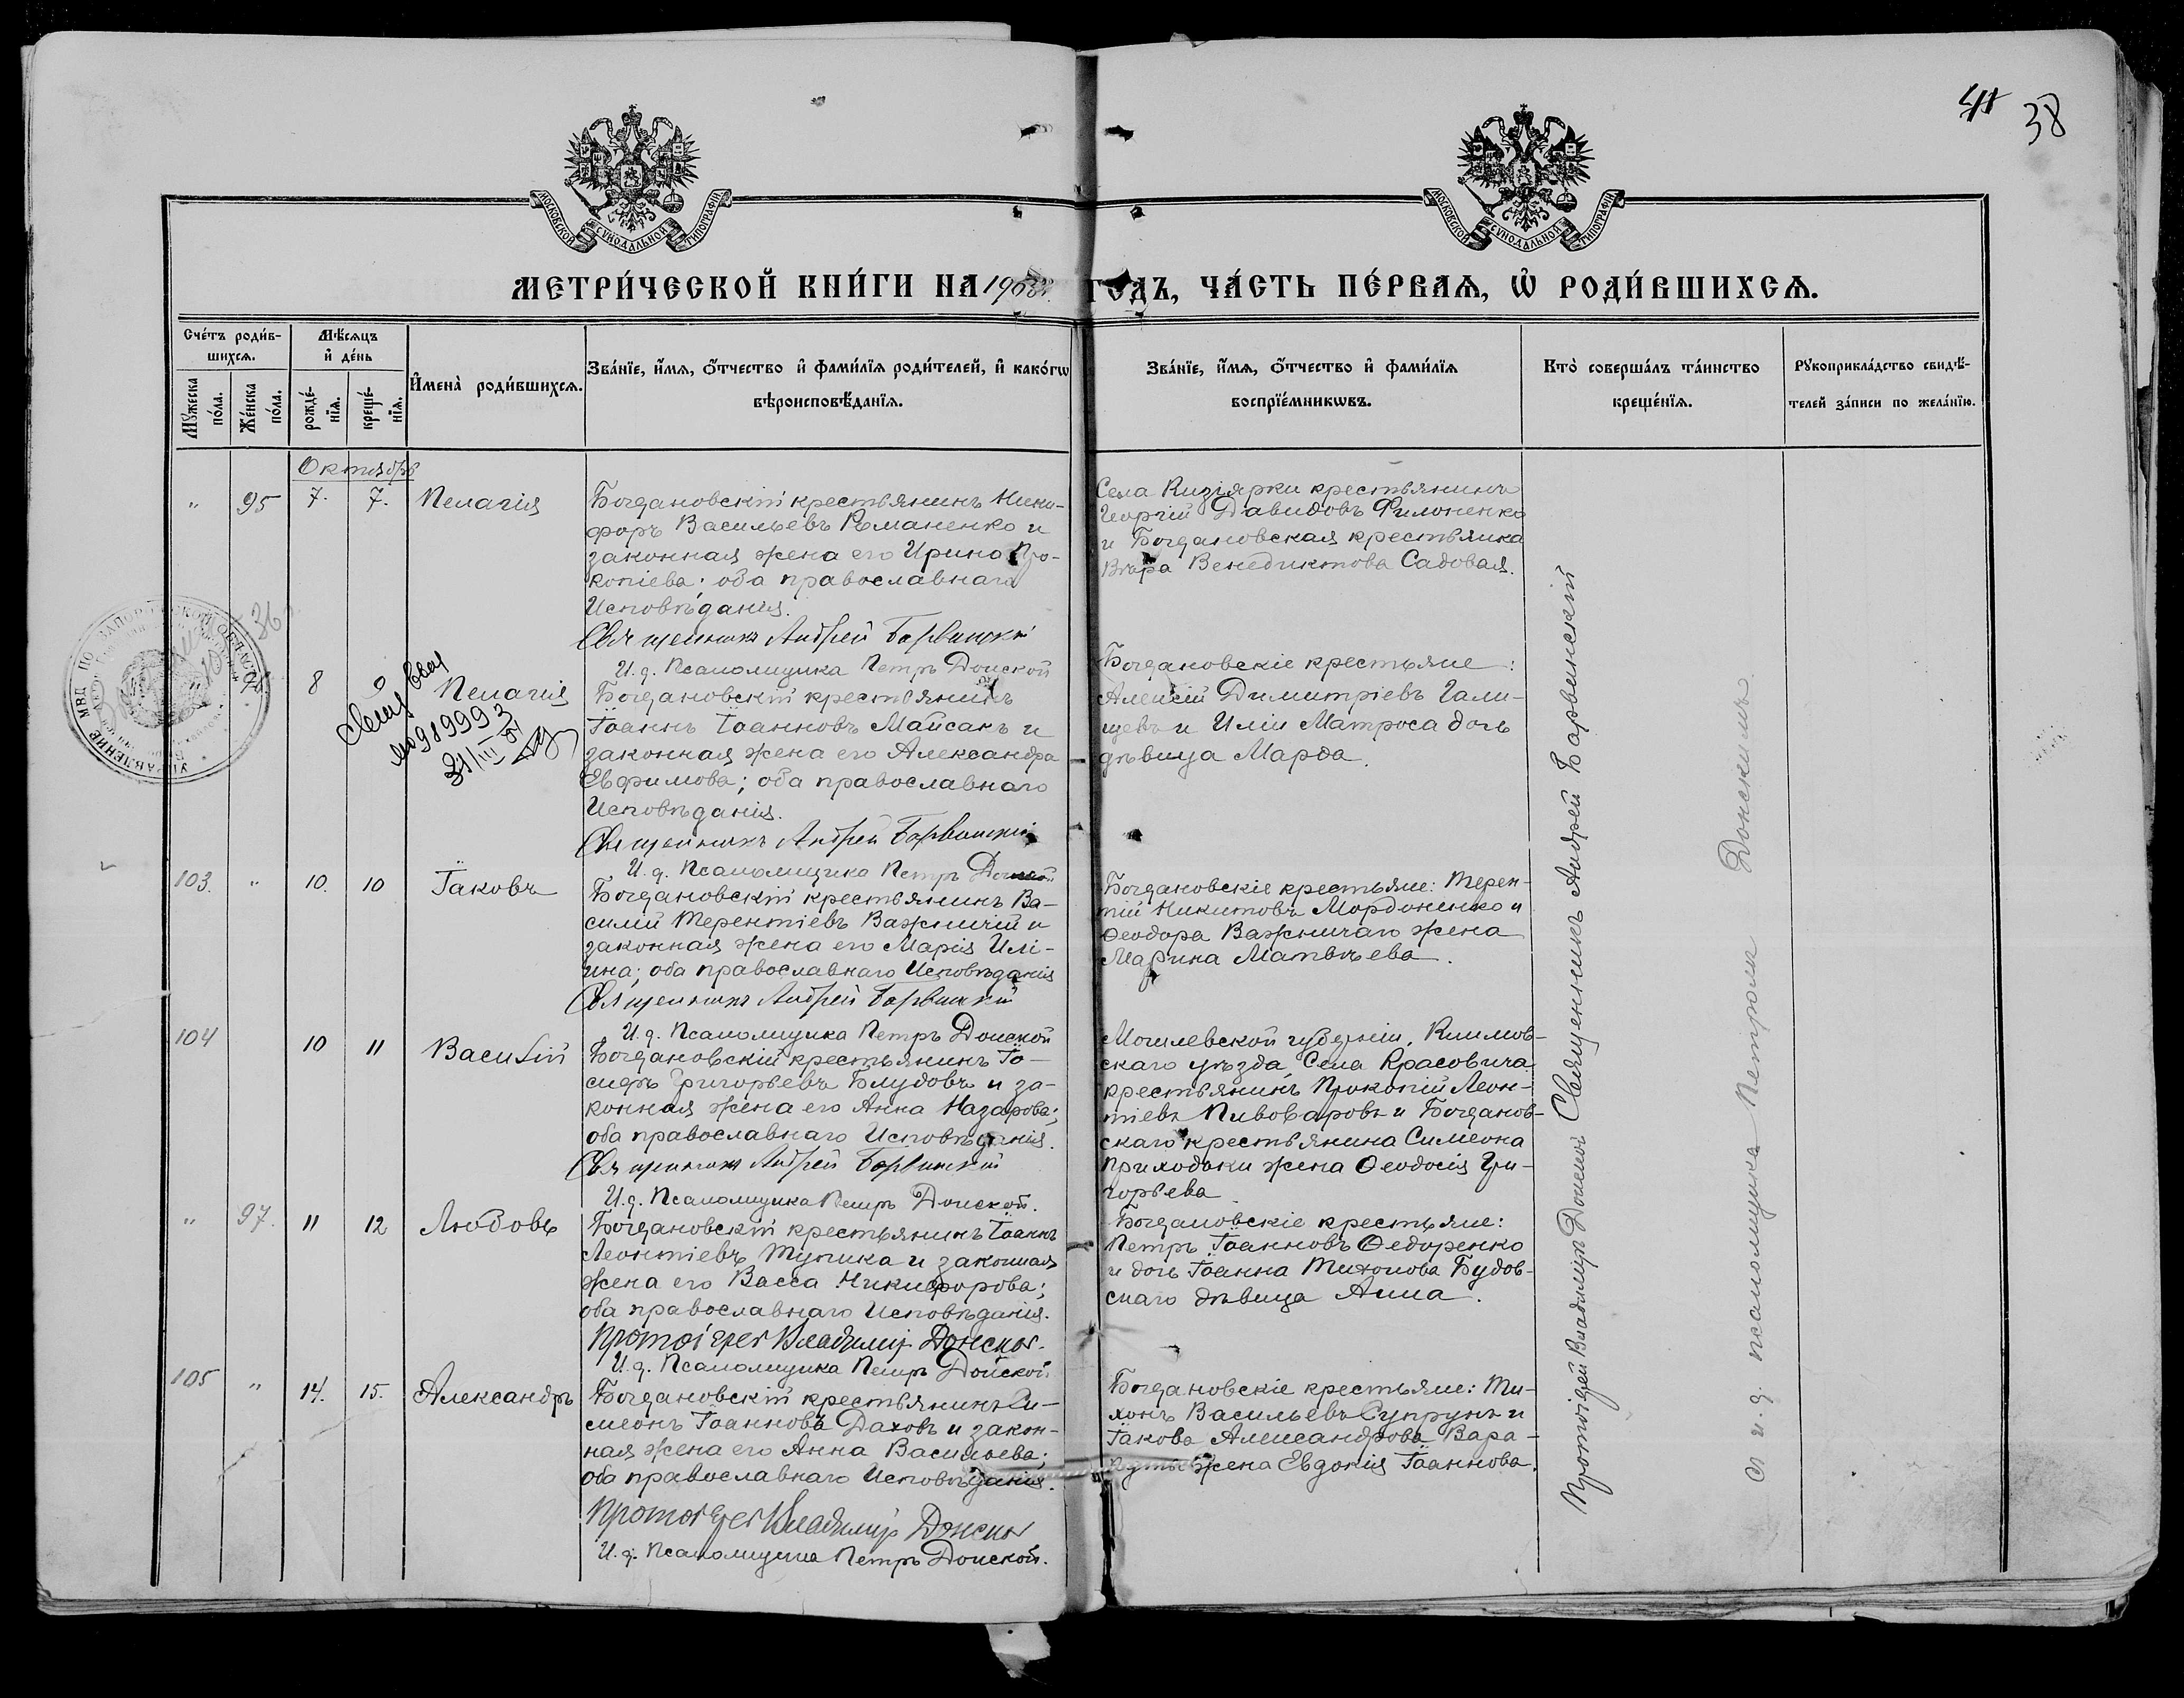 41 38
МОСКОВСКОЙ СѴНОДАЛЬНОЙ ТИПОГРАФІИ
МОСКОВСКОЙ СѴНОДАЛЬНОЙ ТИПОГРАФІИ
МЕТРИ́ЧЕСКОЙ КНИ́ГИ НА 190 ГОДЪ, ЧА́СТЬ ПЕ́РВАѦ, Ѡ҆ РОДИ́ВШИХСѦ.
Сче́тъ роди́в-
шихсѧ.
Мꙋ́жеска по́ла.
Же́нска по́ла.
Мѣ́сѧцъ
и҆ де́нь
рожде́-
нїѧ.
креще́-
нїѧ.
И҆мена̀ роди́вшихсѧ.
Зва́нїе, и҆́мѧ, ѻ҆́тчество и҆ фами́лїѧ роди́телей, и҆ како́гѡ
вѣроисповѣ́данїѧ.
Зва́нїе, и҆́мѧ, ѻ҆́тчество и҆ фами́лїѧ
воспрїе́мникѡвъ.
Кто̀ соверша́лъ та́инство
креще́нїѧ.
Рꙋкоприкла́дство свидѣ́-
телей за́писи по жела́нїю.
Октябрь
" 95 7. 7. Пелагія
Богдановскій крестьянинъ Ники-
форъ Васильевъ Романенко и
законная жена его Ирина Про-
копіева; оба православнаго
Исповѣданія.
Священникъ Андрей Барвинскій
И.д. Псаломщика Петръ Донской
Села Кизіярки крестьянинъ
Георгій Давидовъ Филоненко
и Богдановская крестьянка
Вѣра Венедиктова Садовая.
" 96 8 Пелагія
№ 989993
31/III
Богдановскій крестьянинъ
Іоаннъ Іоанновъ Майсакъ и
законная жена его Александра
Евфимова; оба православнаго
Исповѣданія.
Священникъ Андрей Барвинскій
И.д. Псаломщика Петръ Донской
Богдановскіе крестьяне:
Алексій Димитріевъ Гали-
щевъ и Иліи Матроса дочь
дѣвица Марѳа.
103. " 10. 10 Іаковъ
Богдановскій крестьянинъ Ва-
силій Терентіевъ Важничій и
законная жена его Марія Илі-
ина; оба православнаго Исповѣданія
Священникъ Андрей Барвинскій
И.д. Псаломщика Петръ Донской
Богдановскіе крестьяне: Терен-
тій Никитовъ Мордоненко и
Ѳеодора Важничаго жена
Марина Матвѣева.
104 10 11 Василій
Богдановскій крестьянинъ Іо-
сифъ Григорьевъ Блудовъ и за-
конная жена его Анна Назарова;
оба православнаго Исповѣданія.
Священникъ Андрей Барвинскій
И.д. Псаломщика Петръ Донской.
Могилевской губерніи, Климов-
скаго уѣзда, Села Красовича
крестьянинъ Прокопій Леон-
тіевъ Пивоваровъ и Богданов-
скаго крестьянина Симеона
Приходьки жена Ѳеодосія Гри-
горьева
" 97. 11 12 Любовь
Богдановскій крестьянинъ Іоаннъ
Леонтіевъ Тупика и законная
жена его Васса Никифорова;
оба православнаго Исповѣданія.
Протоіерей Владимір Донской.
И.д. Псаломщика Петръ Донской
Богдановскіе крестьяне:
Петръ Іоанновъ Ѳедоренко
и дочь Іоанна Тихонова Будов-
скаго дѣвица Анна.
105 " 14. 15. Александръ
Богдановскій крестьянинъ Си-
меонъ Іоанновъ Даховъ и закон-
ная жена его Анна Васильева;
оба православнаго Исповѣданія.
Протоіерей Владимір Донской
И.д. Псаломщика Петръ Донской.
Богдановскіе крестьяне: Ти-
хонъ Васильевъ Супрунъ и
Іакова Александрова Вара-
куты жена Евдокія Іоаннова.
Протоіерей Владимір Донской Священникъ Андрей Барвинскій
С и.д. псаломщика Петромъ Донскимъ